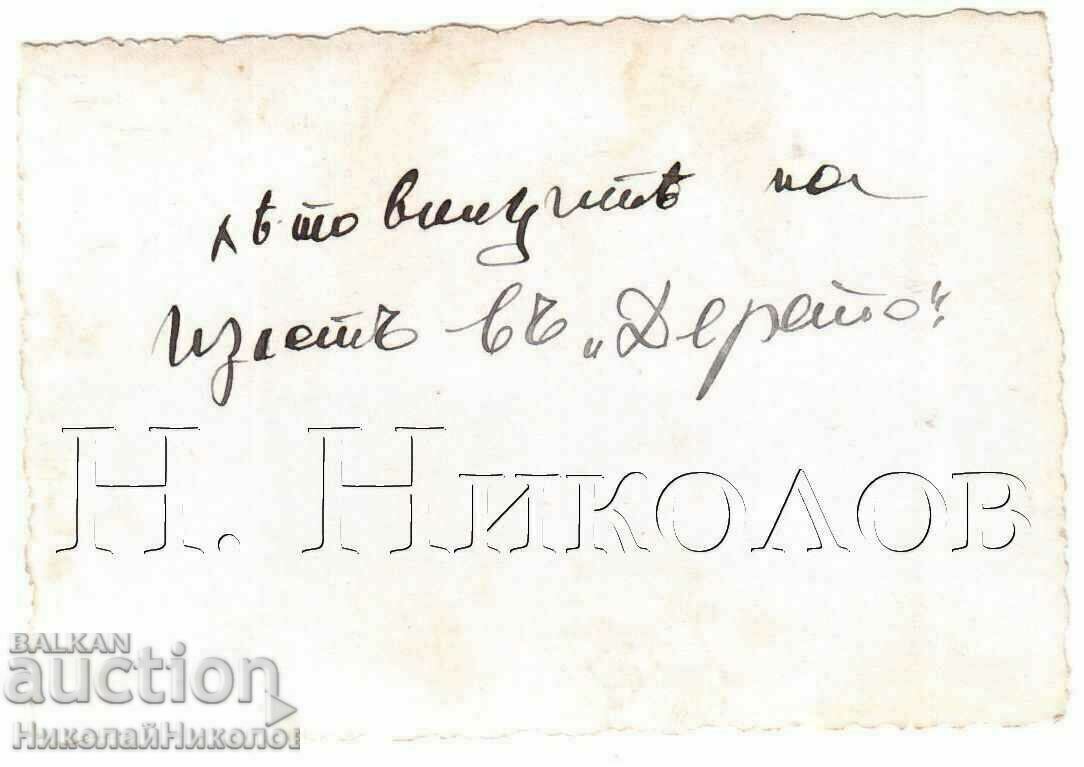 лѣтовницитѣ на
излетъ въ „Дерето".
Н. Николов
BALKAN
auction
НиколайНиколов